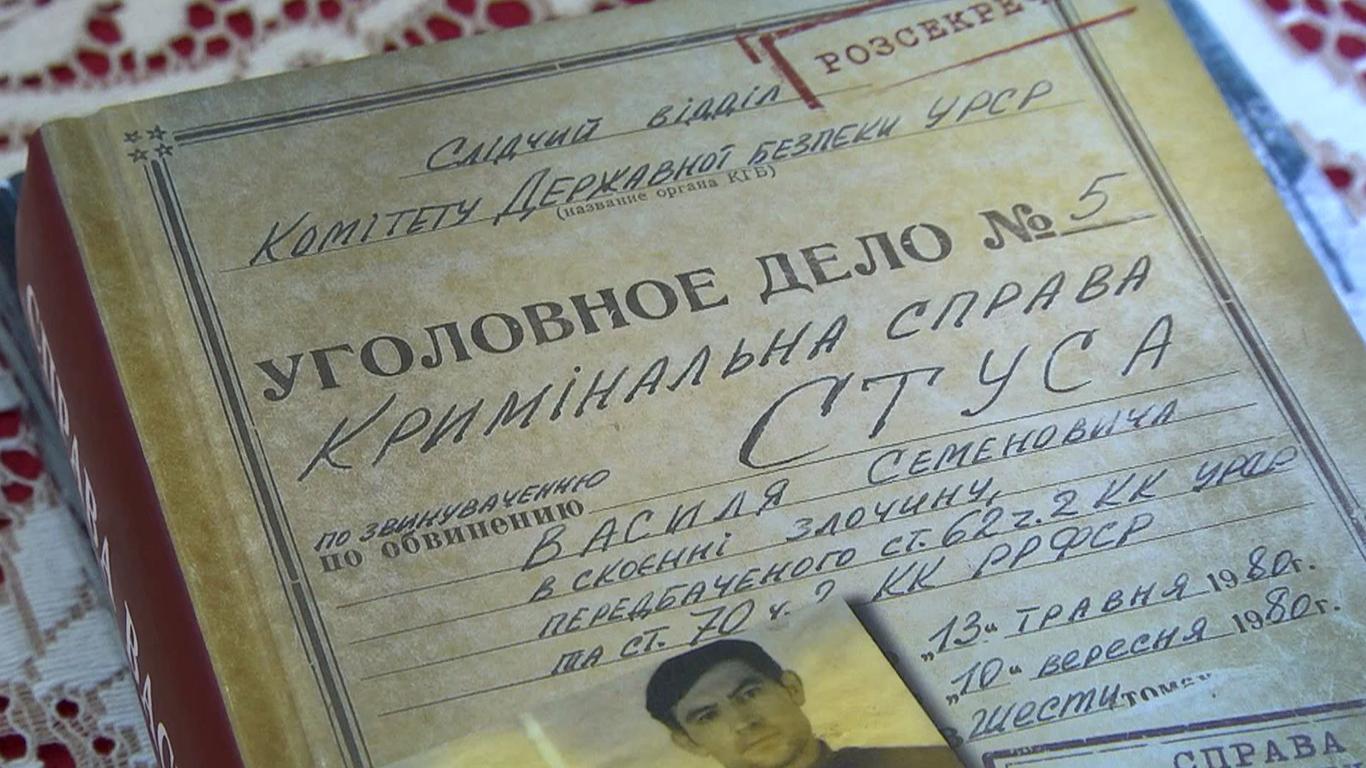 РОЗСЕКРЕЧ
Слідчий відділ
Комітету Державної безпеки УРСР
(название органа КГБ)
УГОЛОВНОЕ ДЕЛО № 5
Кримінальна справа
СТУСА
по звинуваченню
по обвинению
Василя Семеновича
в скоєнні злочину,
передбаченого ст. 62 ч. 2 КК УРСР
та ст. 70 ч. 2 КК РРФСР
„13“ травня 1980г.
„10“ вересня 1980г.
в шести томах
СПРАВА
СПРАВА ВАС